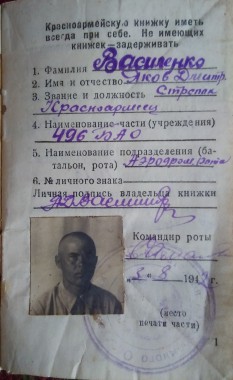 Красноармейскую книжку иметь
всегда при себе. Не имеющих
книжек—задерживать
1. Фамилия Василенко
2. Имя и отчество Яков Дмитр.
3. Звание и должность Стрелок
Красноармеец
4. Наименование части (учреждения)
496 БАО
5. Наименование подразделения (ба-
тальон, рота) Аэродром. рота
6. № личного знака
Личная подпись владельца книжки
Командир роты
8 194
(место
печати части)
1